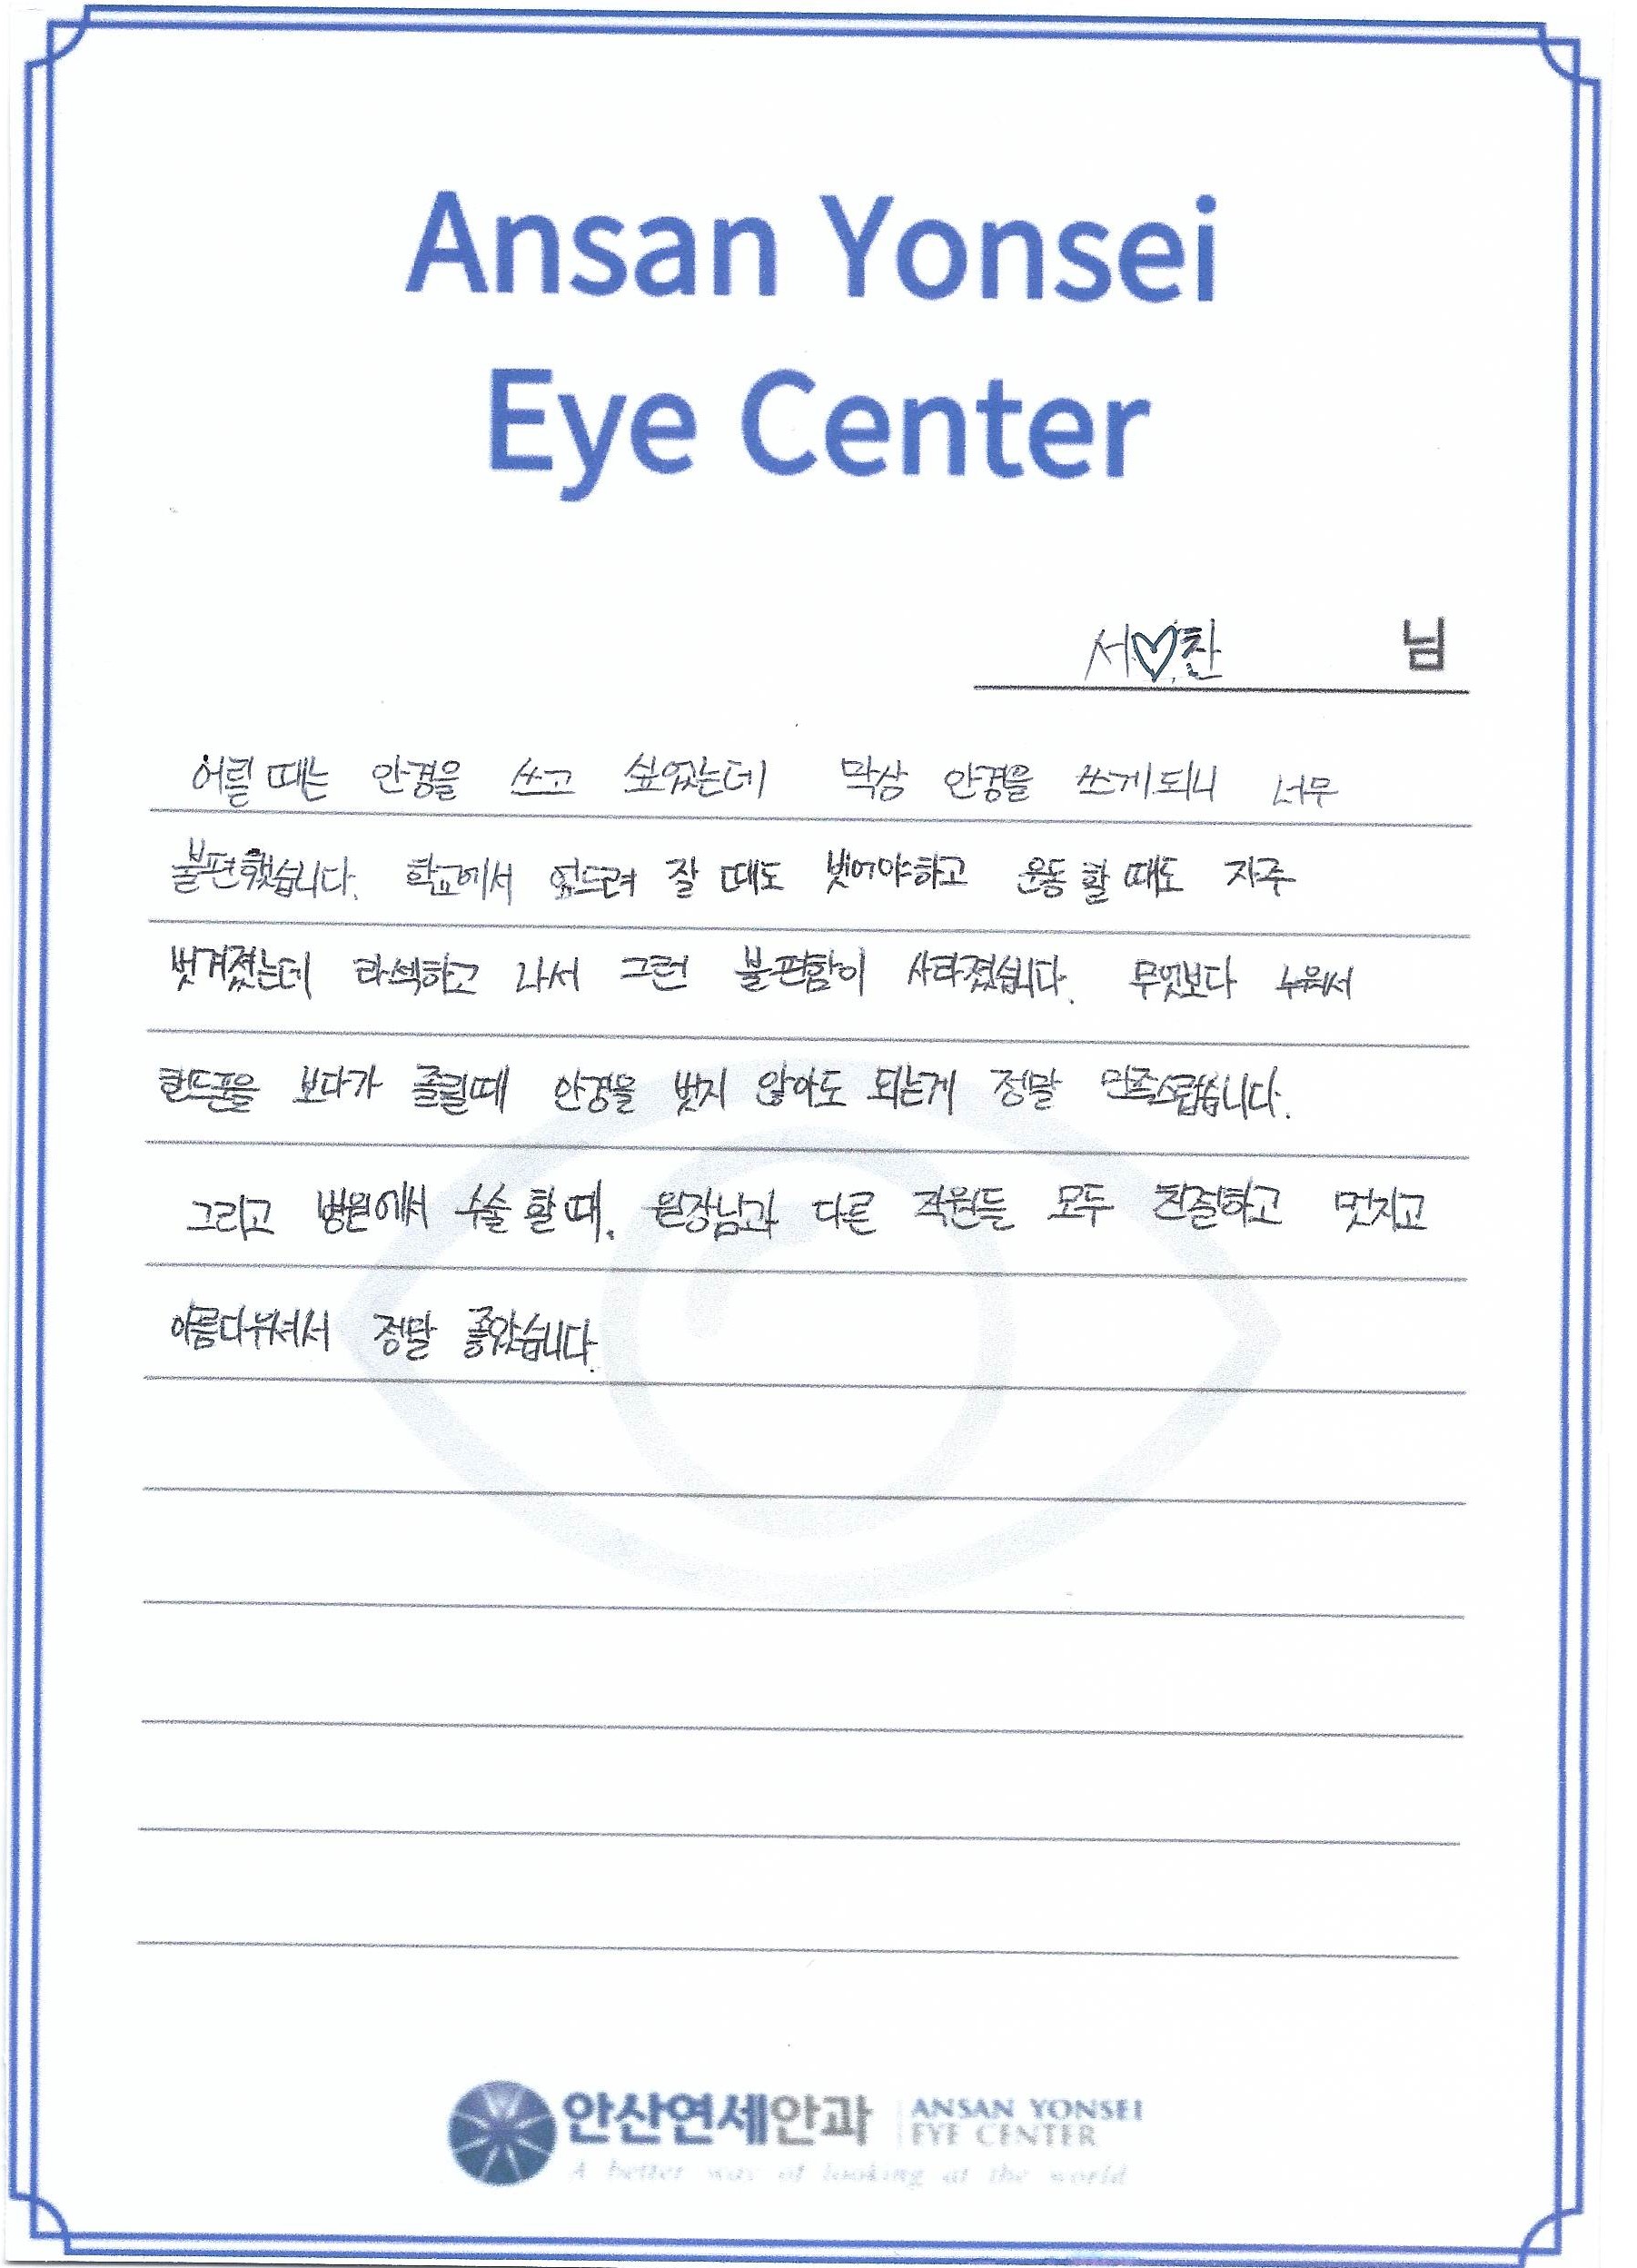 Ansan Yonsei
Eye Center
서♡찬 님
어릴 때는 안경을 쓰고 싶었는데 막상 안경을 쓰게되니 너무
불편했습니다. 학교에서 엎드려 잘 때도 벗어야하고 운동 할 때도 자주
벗겨졌는데 라섹하고 나서 그런 불편함이 사라졌습니다. 무엇보다 누워서
핸드폰을 보다가 졸릴때 안경을 벗지 않아도 되는게 정말 만족스럽습니다.
그리고 병원에서 수술 할 때, 원장님과 다른 직원들 모두 친절하고 멋지고
아름다우셔서 정말 좋았습니다.
안산연세안과 ANSAN YONSEI
EYE CENTER
A better way of looking at the world